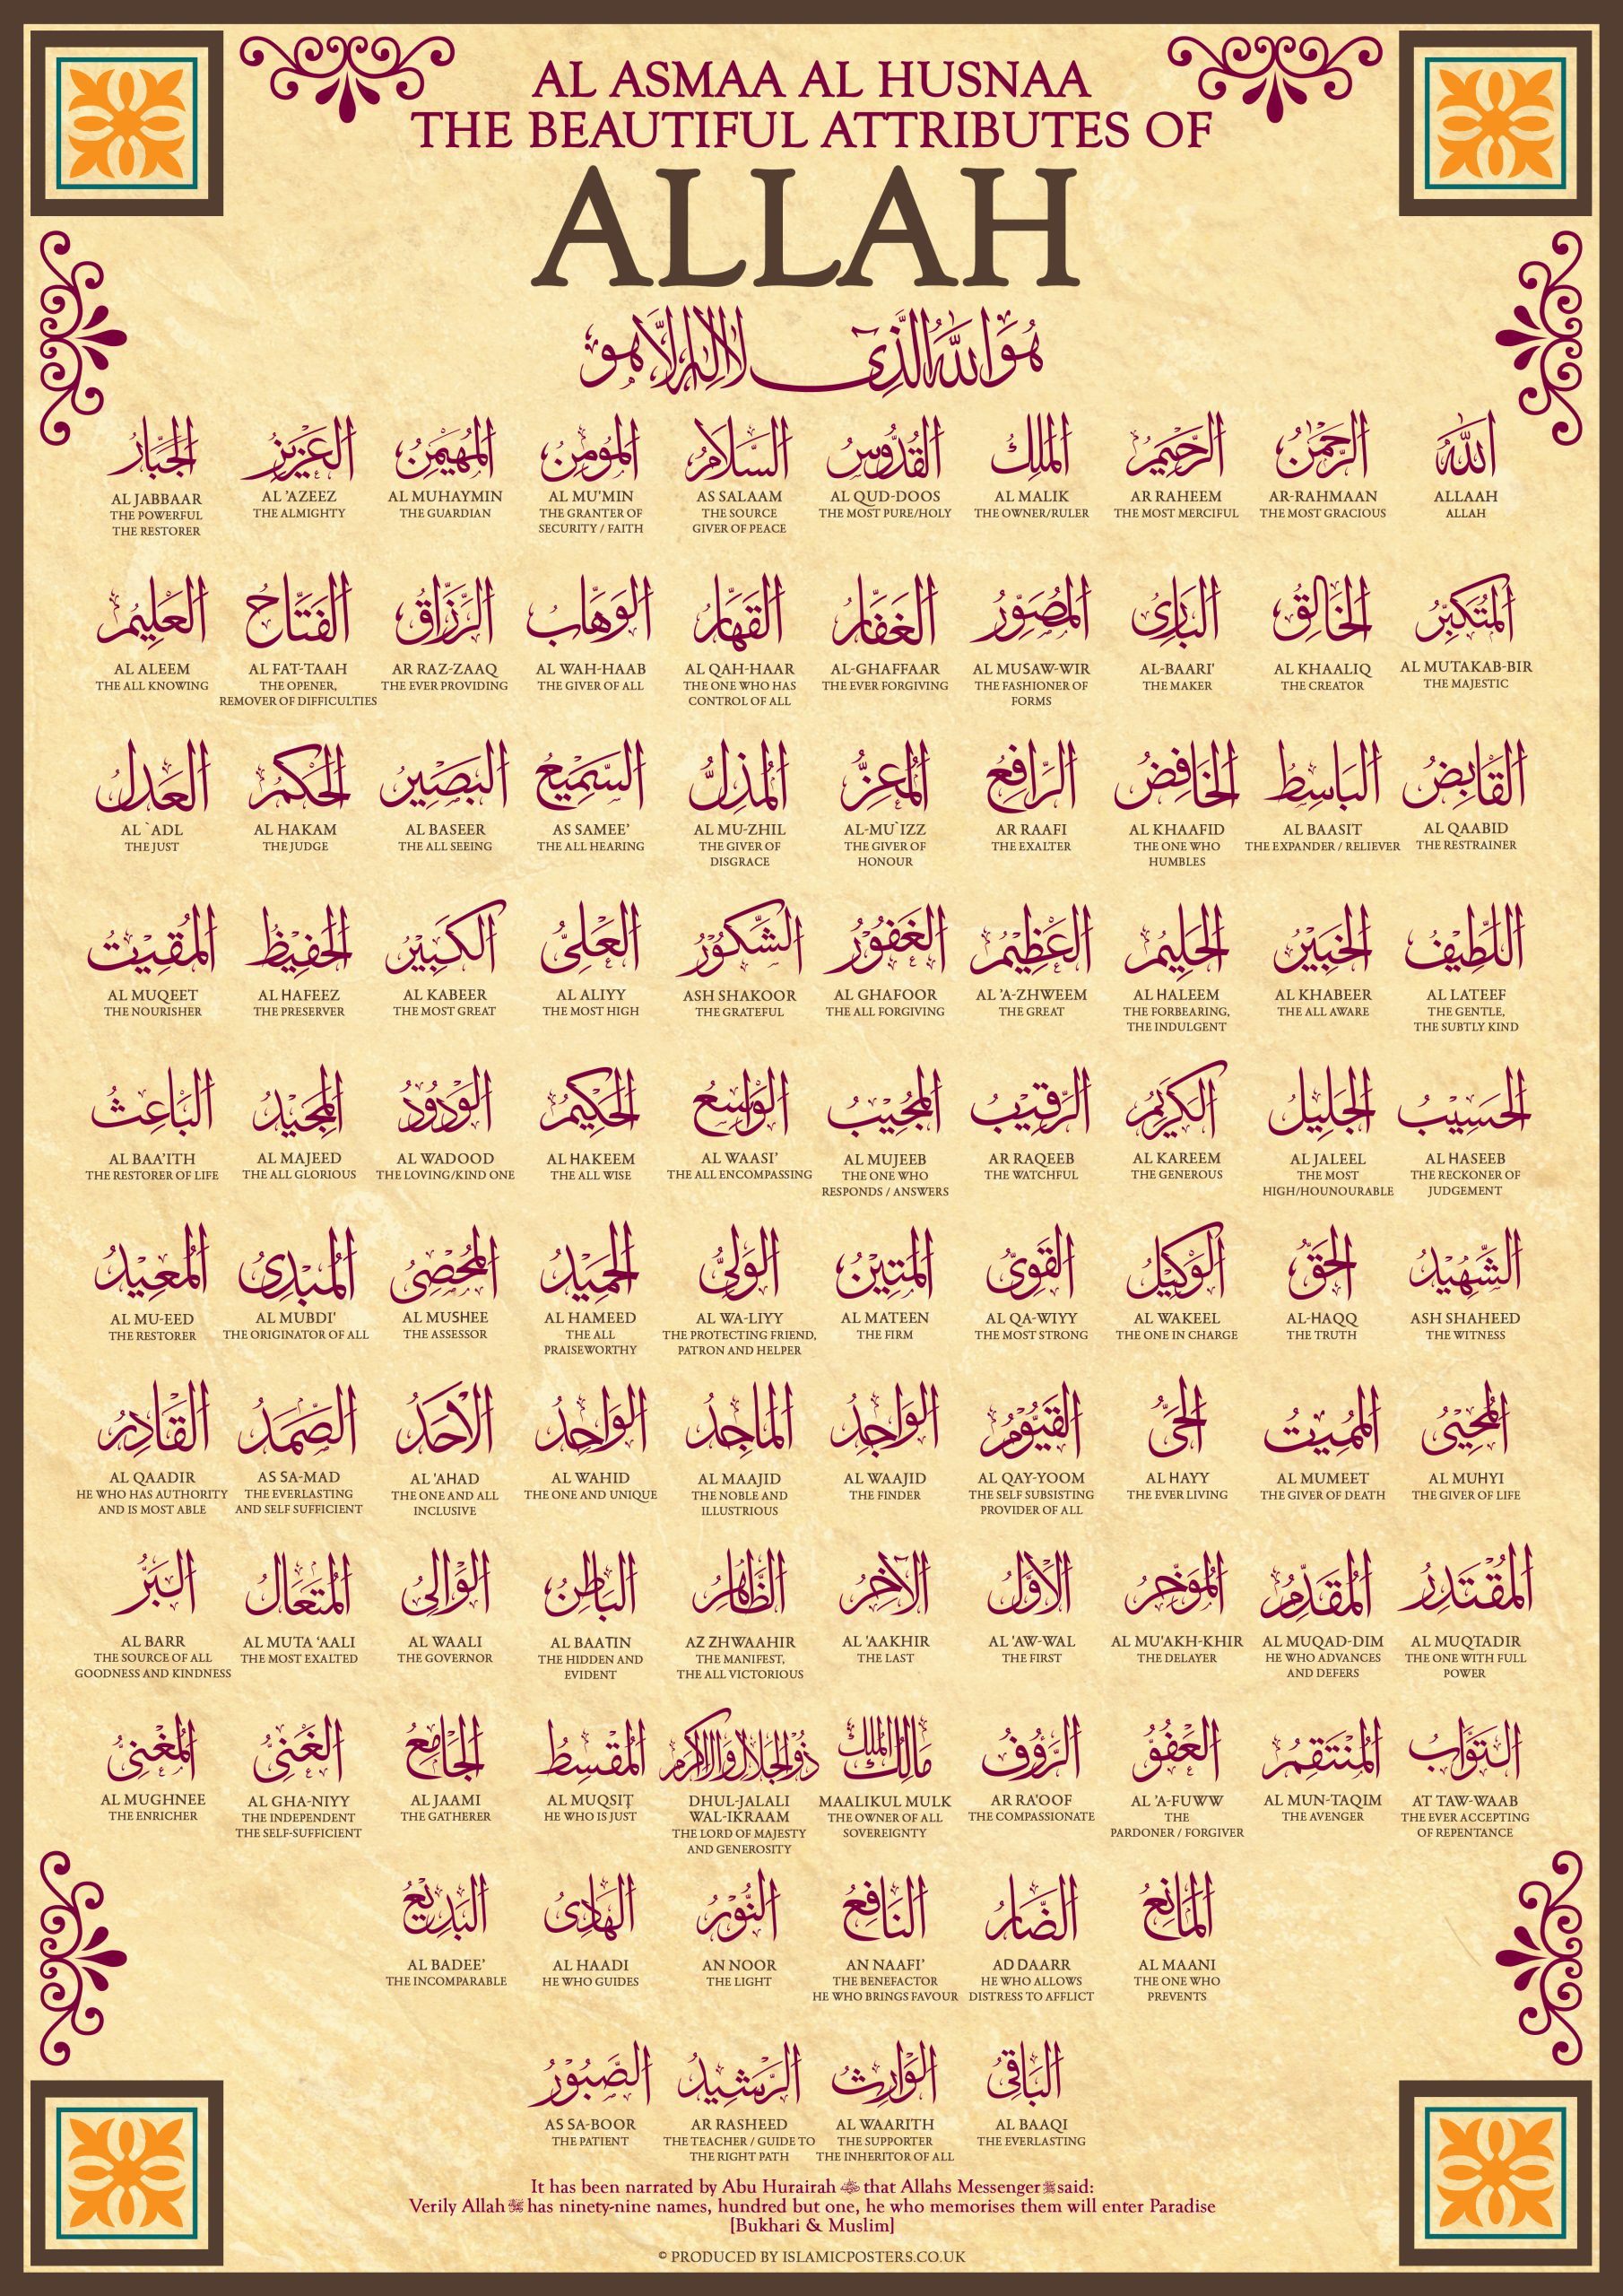 AL ASMAA AL HUSNAA
THE BEAUTIFUL ATTRIBUTES OF
ALLAH
هُوَ اللهُ الَّذِي لَا إِلٰهَ إِلَّا هُوَ
اللهُ
ALLAAH
ALLAH
الرَّحْمٰنُ
AR-RAHMAAN
THE MOST GRACIOUS
الرَّحِيْمُ
AR RAHEEM
THE MOST MERCIFUL
المَلِكُ
AL MALIK
THE OWNER/RULER
القُدُّوسُ
AL QUD-DOOS
THE MOST PURE/HOLY
السَّلَامُ
AS SALAAM
THE SOURCE
GIVER OF PEACE
المُؤْمِنُ
AL MU'MIN
THE GRANTER OF
SECURITY / FAITH
المُهَيْمِنُ
AL MUHAYMIN
THE GUARDIAN
العَزِيزُ
AL 'AZEEZ
THE ALMIGHTY
الجَبَّارُ
AL JABBAAR
THE POWERFUL
THE RESTORER
المُتَكَبِّرُ
AL MUTAKAB-BIR
THE MAJESTIC
الخَالِقُ
AL KHAALIQ
THE CREATOR
البَارِئُ
AL-BAARI'
THE MAKER
المُصَوِّرُ
AL MUSAW-WIR
THE FASHIONER OF
FORMS
الغَفَّارُ
AL-GHAFFAAR
THE EVER FORGIVING
القَهَّارُ
AL QAH-HAAR
THE ONE WHO HAS
CONTROL OF ALL
الوَهَّابُ
AL WAH-HAAB
THE GIVER OF ALL
الرَّزَّاقُ
AR RAZ-ZAAQ
THE EVER PROVIDING
الفَتَّاحُ
AL FAT-TAAH
THE OPENER,
REMOVER OF DIFFICULTIES
العَلِيْمُ
AL ALEEM
THE ALL KNOWING
القَابِضُ
AL QAABID
THE RESTRAINER
البَاسِطُ
AL BAASIT
THE EXPANDER / RELIEVER
الخَافِضُ
AL KHAAFID
THE ONE WHO
HUMBLES
الرَّافِعُ
AR RAAFI
THE EXALTER
المُعِزُّ
AL-MU`IZZ
THE GIVER OF
HONOUR
المُذِلُّ
AL MU-ZHIL
THE GIVER OF
DISGRACE
السَّمِيْعُ
AS SAMEE’
THE ALL HEARING
البَصِيْرُ
AL BASEER
THE ALL SEEING
الحَكَمُ
AL HAKAM
THE JUDGE
العَدْلُ
AL `ADL
THE JUST
اللَّطِيْفُ
AL LATEEF
THE GENTLE,
THE SUBTLY KIND
الخَبِيْرُ
AL KHABEER
THE ALL AWARE
الحَلِيْمُ
AL HALEEM
THE FORBEARING,
THE INDULGENT
العَظِيْمُ
AL 'A-ZHWEEM
THE GREAT
الغَفُوْرُ
AL GHAFOOR
THE ALL FORGIVING
الشَّكُوْرُ
ASH SHAKOOR
THE GRATEFUL
العَلِيُّ
AL ALIYY
THE MOST HIGH
الكَبِيْرُ
AL KABEER
THE MOST GREAT
الحَفِيْظُ
AL HAFEEZ
THE PRESERVER
المُقِيْتُ
AL MUQEET
THE NOURISHER
الحَسِيْبُ
AL HASEEB
THE RECKONER OF
JUDGEMENT
الجَلِيْلُ
AL JALEEL
THE MOST
HIGH/HOUNOURABLE
الكَرِيْمُ
AL KAREEM
THE GENEROUS
الرَّقِيْبُ
AR RAQEEB
THE WATCHFUL
المُجِيْبُ
AL MUJEEB
THE ONE WHO
RESPONDS / ANSWERS
الوَاسِعُ
AL WAASI’
THE ALL ENCOMPASSING
الحَكِيْمُ
AL HAKEEM
THE ALL WISE
الوَدُوْدُ
AL WADOOD
THE LOVING/KIND ONE
المَجِيْدُ
AL MAJEED
THE ALL GLORIOUS
البَاعِثُ
AL BAA’ITH
THE RESTORER OF LIFE
الشَّهِيْدُ
ASH SHAHEED
THE WITNESS
الحَقُّ
AL-HAQQ
THE TRUTH
الوَكِيْلُ
AL WAKEEL
THE ONE IN CHARGE
القَوِيُّ
AL QA-WIYY
THE MOST STRONG
المَتِيْنُ
AL MATEEN
THE FIRM
الوَلِيُّ
AL WA-LIYY
THE PROTECTING FRIEND,
PATRON AND HELPER
الحَمِيْدُ
AL HAMEED
THE ALL
PRAISEWORTHY
المُحْصِي
AL MUSHEE
THE ASSESSOR
المُبْدِئُ
AL MUBDI'
THE ORIGINATOR OF ALL
المُعِيْدُ
AL MU-EED
THE RESTORER
المُحْيِي
AL MUHYI
THE GIVER OF LIFE
المُمِيْتُ
AL MUMEET
THE GIVER OF DEATH
الحَيُّ
AL HAYY
THE EVER LIVING
القَيُّوْمُ
AL QAY-YOOM
THE SELF SUBSISTING
PROVIDER OF ALL
الوَاجِدُ
AL WAAJID
THE FINDER
المَاجِدُ
AL MAAJID
THE NOBLE AND
ILLUSTRIOUS
الوَاحِدُ
AL WAHID
THE ONE AND UNIQUE
الأَحَدُ
AL 'AHAD
THE ONE AND ALL
INCLUSIVE
الصَّمَدُ
AS SA-MAD
THE EVERLASTING
AND SELF SUFFICIENT
القَادِرُ
AL QAADIR
HE WHO HAS AUTHORITY
AND IS MOST ABLE
المُقْتَدِرُ
AL MUQTADIR
THE ONE WITH FULL
POWER
المُقَدِّمُ
AL MUQAD-DIM
HE WHO ADVANCES
AND DEFERS
المُؤَخِّرُ
AL MU'AKH-KHIR
THE DELAYER
الأَوَّلُ
AL 'AW-WAL
THE FIRST
الآخِرُ
AL 'AAKHIR
THE LAST
الظَّاهِرُ
AZ ZHWAAHIR
THE MANIFEST,
THE ALL VICTORIOUS
البَاطِنُ
AL BAATIN
THE HIDDEN AND
EVIDENT
الوَالِي
AL WAALI
THE GOVERNOR
المُتَعَالُ
AL MUTA ‘AALI
THE MOST EXALTED
البَرُّ
AL BARR
THE SOURCE OF ALL
GOODNESS AND KINDNESS
التَّوَّابُ
AT TAW-WAAB
THE EVER ACCEPTING
OF REPENTANCE
المُنْتَقِمُ
AL MUN-TAQIM
THE AVENGER
العَفُوُّ
AL 'A-FUWW
THE
PARDONER / FORGIVER
الرَّؤُوْفُ
AR RA'OOF
THE COMPASSIONATE
مَالِكُ المُلْكِ
MAALIKUL MULK
THE OWNER OF ALL
SOVEREIGNTY
ذُو الجَلَالِ وَالإِكْرَامِ
DHUL-JALALI
WAL-IKRAAM
THE LORD OF MAJESTY
AND GENEROSITY
المُقْسِطُ
AL MUQSIT
HE WHO IS JUST
الجَامِعُ
AL JAAMI
THE GATHERER
الغَنِيُّ
AL GHA-NIYY
THE INDEPENDENT
THE SELF-SUFFICIENT
المُغْنِيُ
AL MUGHNEE
THE ENRICHER
المَانِعُ
AL MAANI
THE ONE WHO
PREVENTS
الضَّارُ
AD DAARR
HE WHO ALLOWS
DISTRESS TO AFFLICT
النَّافِعُ
AN NAAFI’
THE BENEFACTOR
HE WHO BRINGS FAVOUR
النُّوْرُ
AN NOOR
THE LIGHT
الهَادِي
AL HAADI
HE WHO GUIDES
البَدِيْعُ
AL BADEE’
THE INCOMPARABLE
البَاقِي
AL BAAQI
THE EVERLASTING
الوَارِثُ
AL WAARITH
THE SUPPORTER
THE INHERITOR OF ALL
الرَّشِيْدُ
AR RASHEED
THE TEACHER / GUIDE TO
THE RIGHT PATH
الصَّبُوْرُ
AS SA-BOOR
THE PATIENT
It has been narrated by Abu Hurairah that Allahs Messenger ﷺ said:
Verily Allah has ninety-nine names, hundred but one, he who memorises them will enter Paradise
[Bukhari & Muslim]
© PRODUCED BY ISLAMICPOSTERS.CO.UK